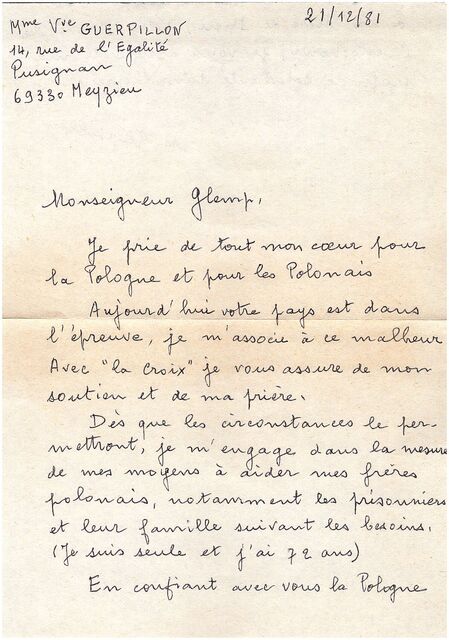 Mme Vve GUERPILLON
21/12/81
14, rue de l'Egalité
Pusignan
69330 Meyzieu
Monseigneur Glemp,
Je prie de tout mon cœur pour
la Pologne et pour les Polonais
Aujourd'hui votre pays est dans
l'épreuve, je m'associe à ce malheur
Avec "la Croix" je vous assure de mon
soutien et de ma prière.
Dès que les circonstances le per-
mettront, je m'engage dans la mesure
de mes moyens à aider mes frères
polonais, notamment les prisonniers
et leur famille suivant les besoins.
(Je suis seule et j'ai 72 ans)
En confiant avec vous la Pologne